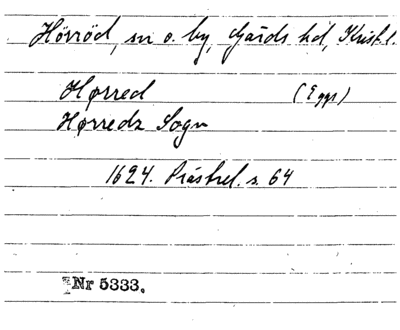 Hörröd, sn o. by, Gärds hd, Krist. l.
Hørred (Egps)
Hørredz Sogn
1624. Prästrel. s. 64
Nr 5333.